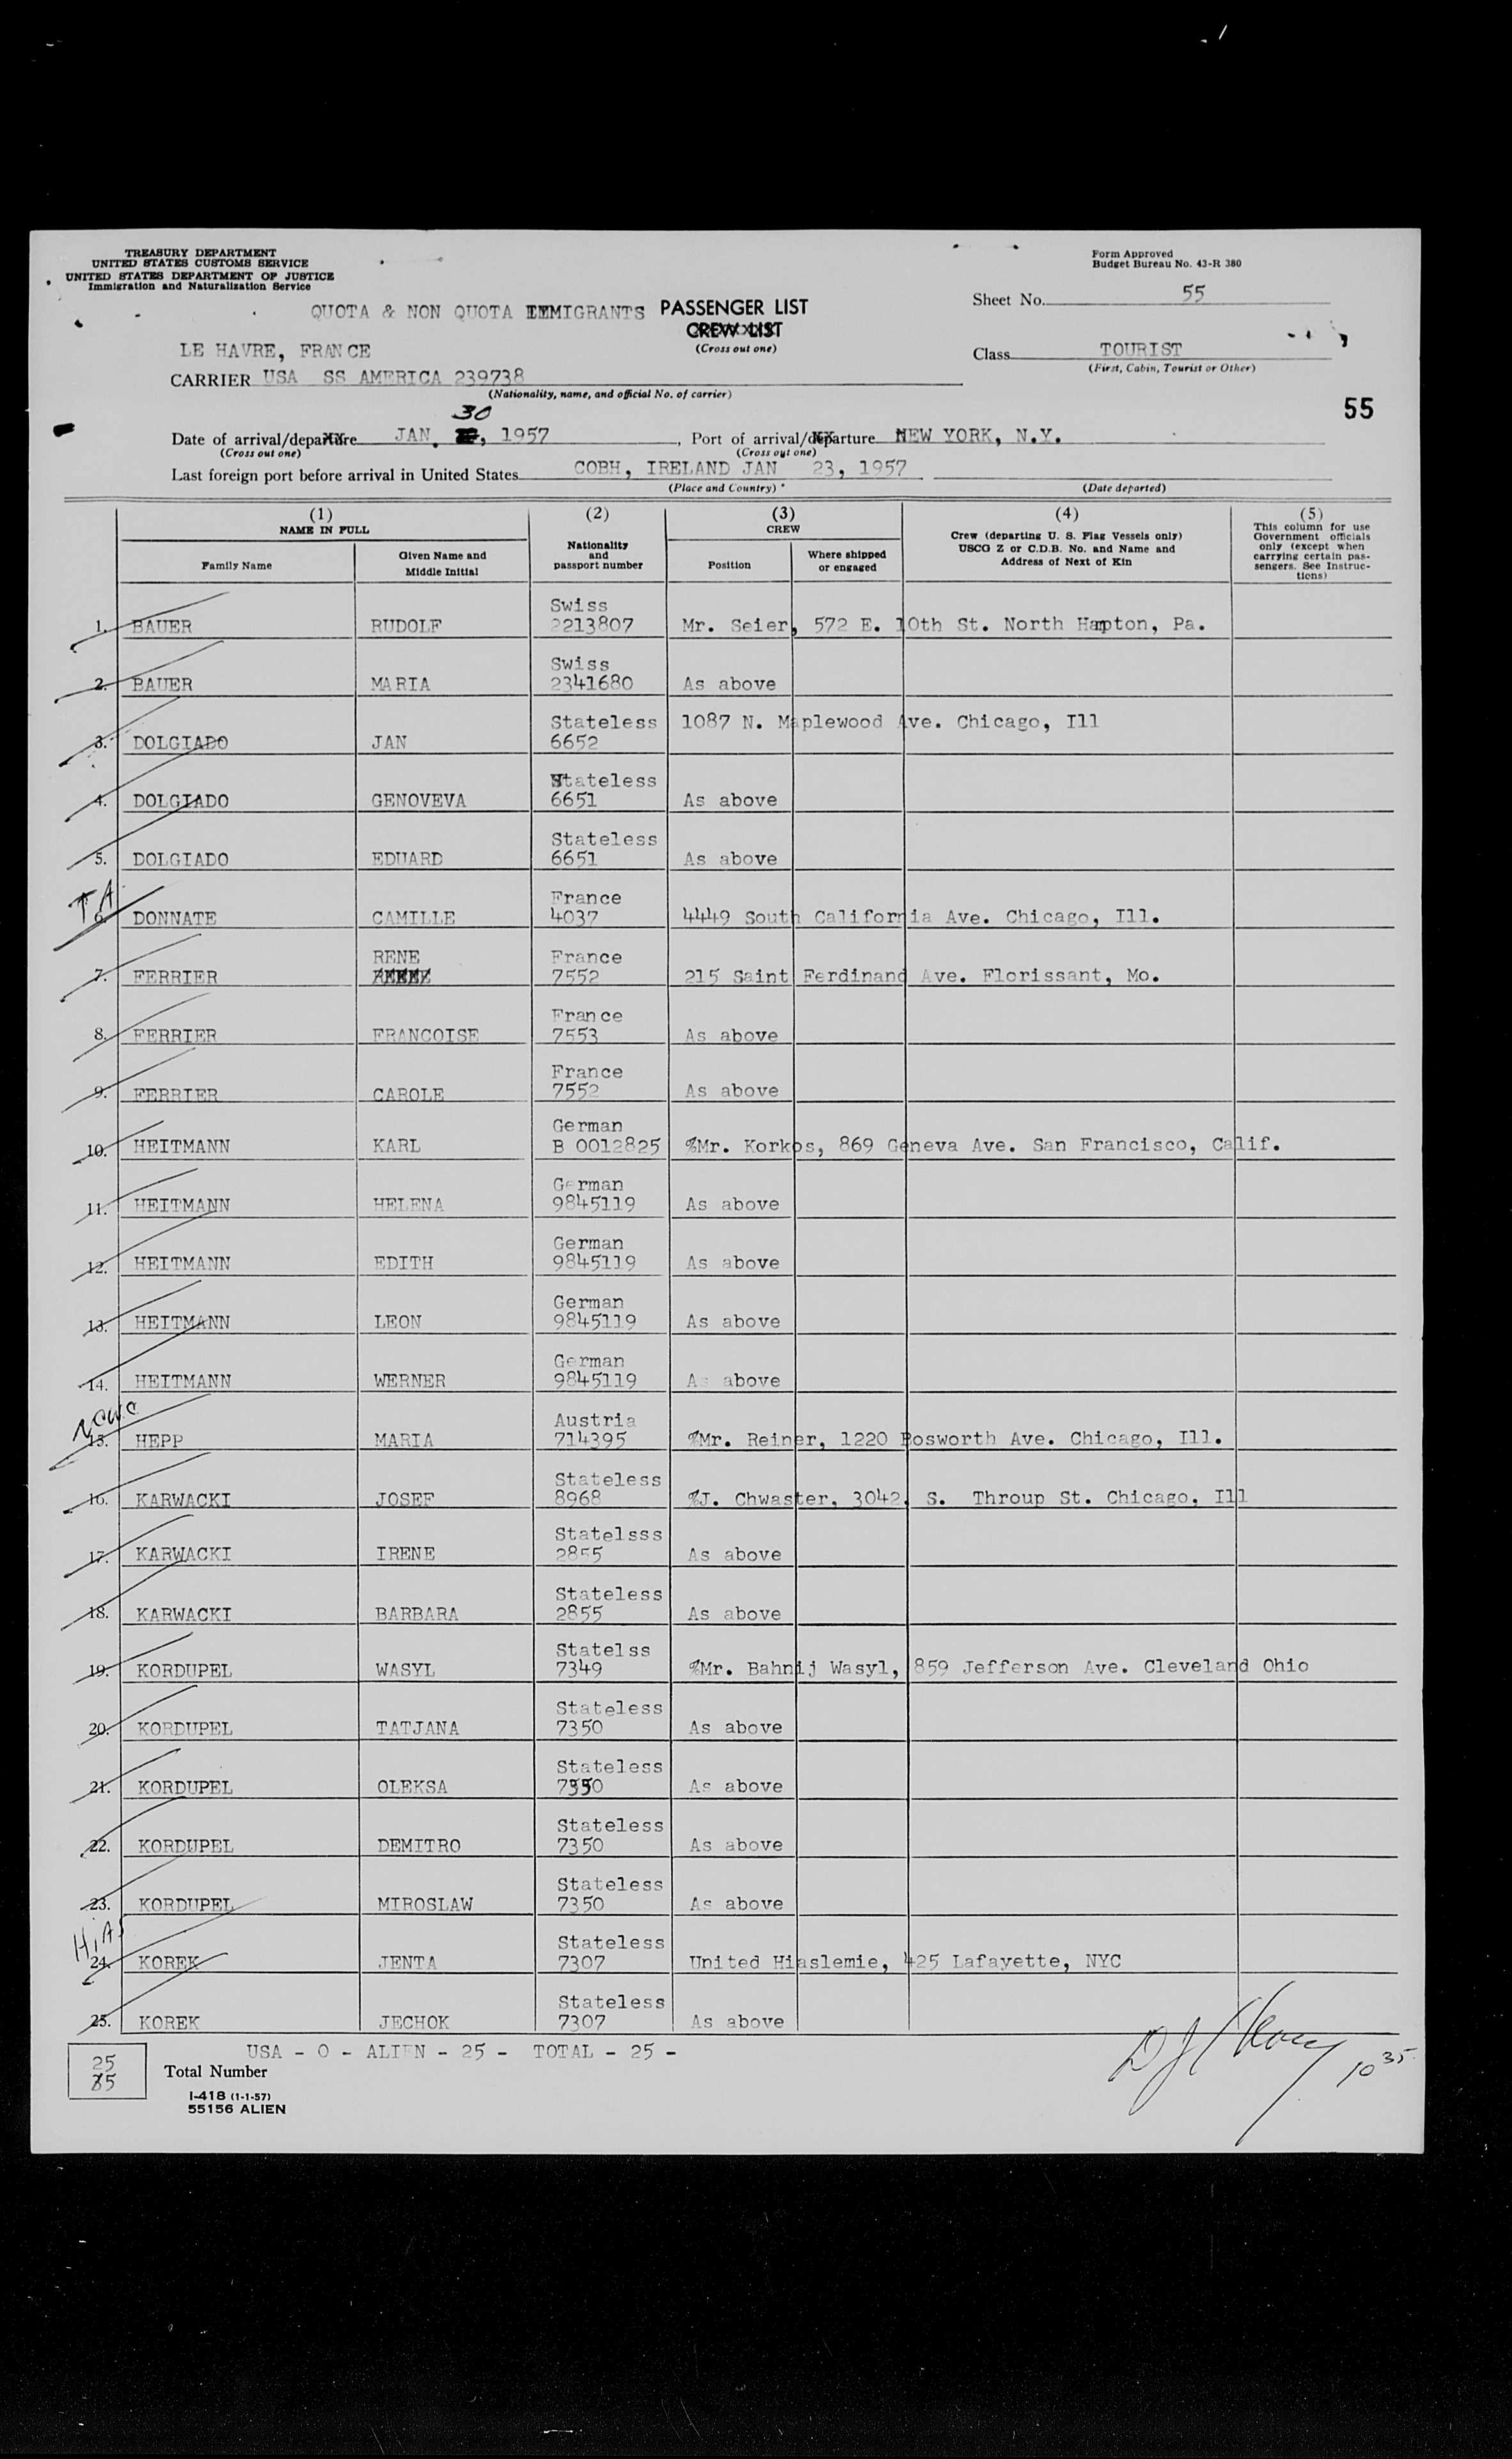 TREASURY DEPARTMENT
UNITED STATES CUSTOMS SERVICE
UNITED STATES DEPARTMENT OF JUSTICE
Immigration and Naturalization Service
Form Approved
Budget Bureau No. 43-R 380
QUOTA & NON QUOTA IMMIGRANTS PASSENGER LIST
CREW LIST
(Cross out one)
Sheet No. 55
LE HAVRE, FRANCE
Class TOURIST
(First, Cabin, Tourist or Other)
CARRIER USA SS AMERICA 239738
(Nationality, name, and official No. of carrier)
55
Date of arrival/departure JAN. 30, 1957, Port of arrival/departure NEW YORK, N.Y.
(Cross out one) (Cross out one)
Last foreign port before arrival in United States COBH, IRELAND JAN 23, 1957
(Place and Country) (Date departed)
(1) NAME IN FULL
Family Name
Given Name and Middle Initial
(2)
Nationality and passport number
(3) CREW
Position
Where shipped or engaged
(4)
Crew (departing U. S. Flag Vessels only)
USCG Z or C.D.B. No. and Name and
Address of Next of Kin
(5)
This column for use
Government officials
only (except when
carrying certain pas-
sengers. See Instruc-
tions)
1. BAUER RUDOLF Swiss 2213807 Mr. Seier, 572 E. 10th St. North Hampton, Pa.
2. BAUER MARIA Swiss 2341680 As above
3. DOLGIADO JAN Stateless 6652 1087 N. Maplewood Ave. Chicago, Ill
4. DOLGIADO GENOVEVA Stateless 6651 As above
5. DOLGIADO EDUARD Stateless 6651 As above
TA
6. DONNATE CAMILLE France 4037 4449 South California Ave. Chicago, Ill.
7. FERRIER RENE France 7552 215 Saint Ferdinand Ave. Florissant, Mo.
8. FERRIER FRANCOISE France 7553 As above
9. FERRIER CAROLE France 7552 As above
10. HEITMANN KARL German B 0012825 %Mr. Korkos, 869 Geneva Ave. San Francisco, Calif.
11. HEITMANN HELENA German 9845119 As above
12. HEITMANN EDITH German 9845119 As above
13. HEITMANN LEON German 9845119 As above
14. HEITMANN WERNER German 9845119 As above
NCWC
15. HEPP MARIA Austria 714395 %Mr. Reiner, 1220 Bosworth Ave. Chicago, Ill.
16. KARWACKI JOSEF Stateless 8968 %J. Chwaster, 3042 S. Throup St. Chicago, Ill
17. KARWACKI IRENE Statelsss 2855 As above
18. KARWACKI BARBARA Stateless 2855 As above
19. KORDUPEL WASYL Statelss 7349 %Mr. Bahnij Wasyl, 859 Jefferson Ave. Cleveland Ohio
20. KORDUPEL TATJANA Stateless 7350 As above
21. KORDUPEL OLEKSA Stateless 7350 As above
22. KORDUPEL DEMITRO Stateless 7350 As above
23. KORDUPEL MIROSLAW Stateless 7350 As above
HIAS
24. KOREK JENTA Stateless 7307 United Hiaslemie, 425 Lafayette, NYC
25. KOREK JECHOK Stateless 7307 As above
USA - 0 - ALIEN - 25 - TOTAL - 25 -
25
Total Number
10 35
I-418 (1-1-57)
55156 ALIEN